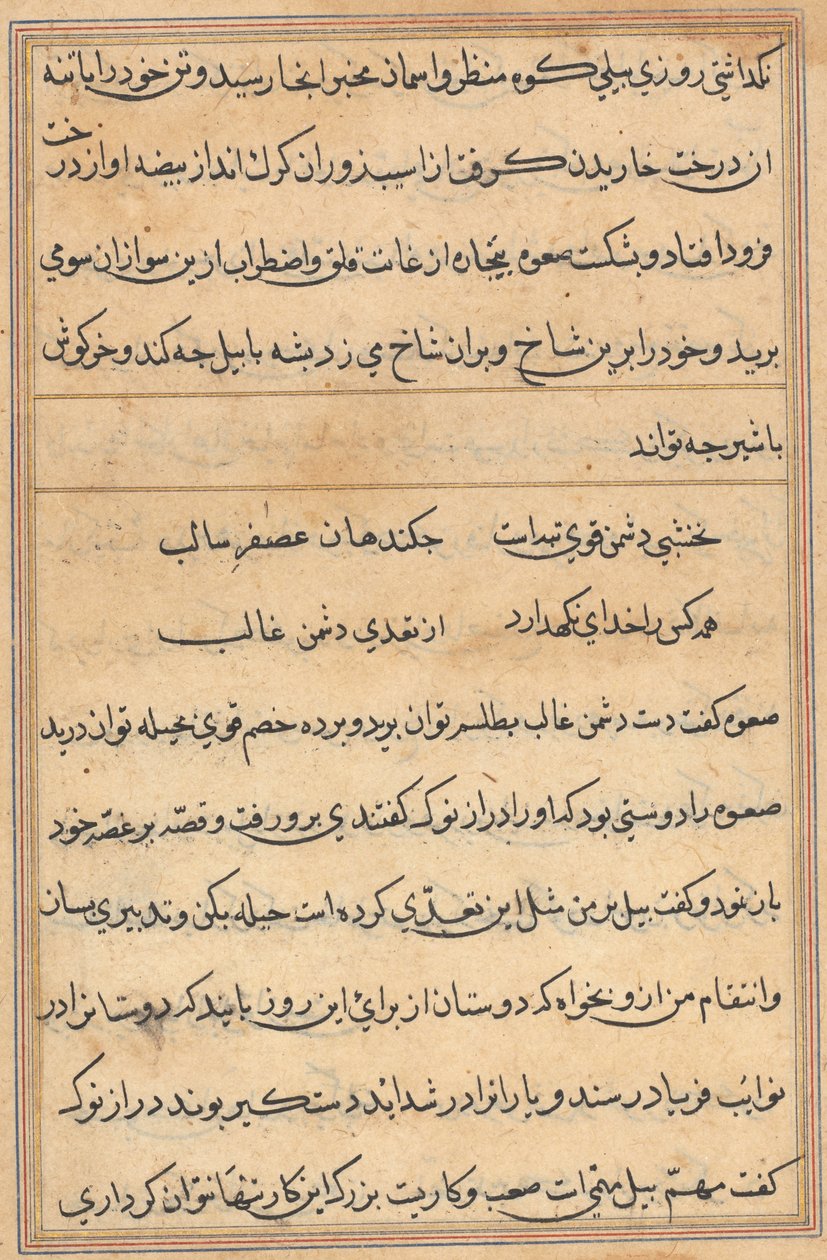 نکداشتی روزی بیلی کوه منظر و اسمان مخبر انجا رسید و تن خود را با تنه
ان درخت خاریدن کرفت از اسیب زور ان کرک انداز بیضه او از درخت
فرود افتاد و بشکست صعوه بیجاره از غایت قلق و اضطراب ازین سو ازان سو می
برید و خود را برین شاخ و بران شاخ می زد بشه با بیل جه کند و خرکوش
با شیر جه تواند
نخشبی دشمن قوی تبد است جکند هان عصفر سالب
همه کس را خدای نکهدارد از تعدی دشمن غالب
صعوه کفت دست دشمن غالب بطلسم توان برید و برده خصم قوی بحیله توان درید
صعوه را دوستی بود که او را دراز نوک کفتندی برو رفت و قصّه بر غصّه خود
باز نمود و کفت بیل بر من مثل این تعدّی کرده است حیله بکن و تدبیری بسان
و انتقام من ازو بخواه که دوستان از برای این روز بایند که دوستانرا در
نوایب فریاد رسند و یارانرا در شداید دستکیر بوند دراز نوک
کفت مهمّ بیل مهمّی است صعب و کاریست بزرک این کار تنها نتوان کرد اری